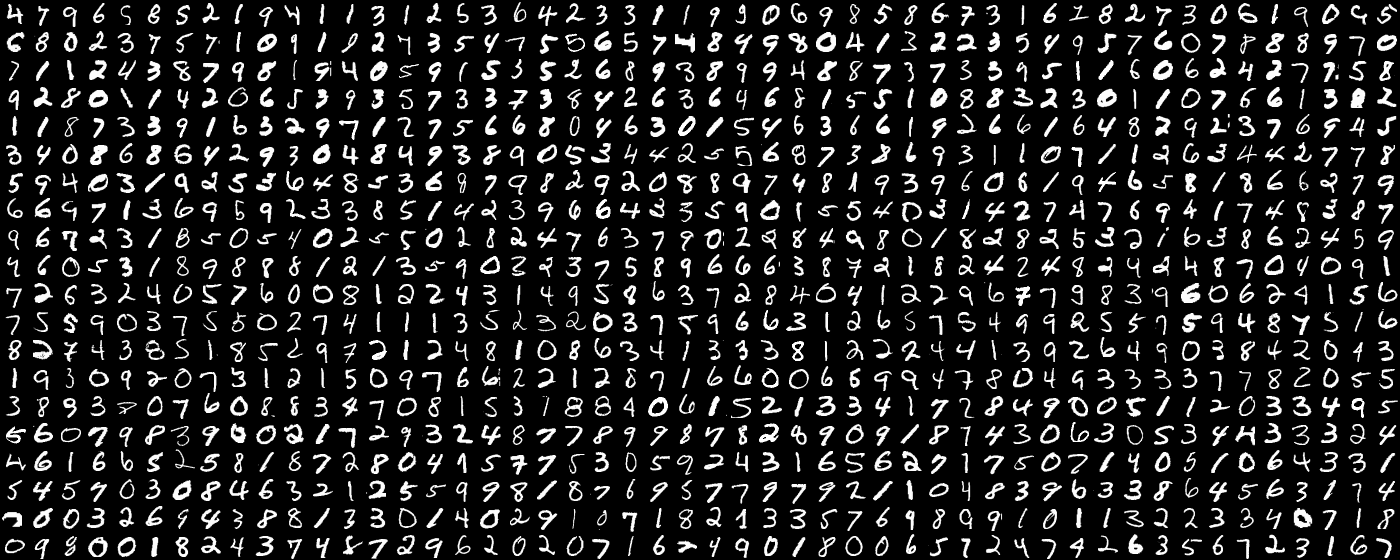 4 7 9 6 5 8 5 2 1 9 4 1 1 3 1 2 5 3 6 4 2 3 3 1 1 9 3 0 6 9 8 5 8 6 7 3 1 6 2 8 2 7 3 0 6 1 9 0 5
6 8 0 2 3 7 5 7 1 0 9 1 1 2 4 3 5 4 7 5 5 6 5 7 4 8 4 9 8 0 4 1 3 2 2 3 5 4 9 5 7 6 0 7 8 8 8 9 7 0
7 1 1 2 4 3 8 7 9 8 1 9 4 0 5 9 1 5 3 5 2 6 8 9 3 8 9 9 4 8 8 7 3 7 3 3 9 5 1 1 6 0 6 2 4 2 7 7 5 8
9 2 8 0 1 1 4 2 0 6 5 3 9 3 5 7 3 3 7 3 8 4 2 6 3 6 4 6 8 1 5 5 1 0 8 8 3 2 3 0 1 1 0 7 6 6 1 3 8 2
1 1 8 7 3 3 9 1 6 3 2 9 7 1 2 7 5 6 6 8 0 4 6 3 0 1 5 4 6 3 6 6 1 9 2 6 6 1 6 4 8 2 9 2 3 7 6 9 4 5
3 4 0 8 6 8 6 4 2 9 3 0 4 8 4 9 3 8 9 0 5 3 4 4 2 5 5 6 8 7 3 8 6 9 3 1 1 0 7 1 1 2 6 3 4 4 2 7 7 8
5 9 4 0 3 1 9 2 5 3 6 4 8 5 3 6 8 7 9 8 2 9 2 0 8 8 9 7 4 8 1 9 3 9 6 0 6 1 9 4 6 5 8 1 8 6 6 2 7 9
6 6 9 7 1 3 6 9 5 9 2 3 3 8 5 1 4 2 3 9 6 6 4 3 3 5 9 0 1 5 5 4 0 3 1 4 2 7 4 7 6 9 4 1 7 4 8 3 8 7
9 6 7 2 3 1 8 5 0 5 4 0 2 5 5 0 2 8 2 4 7 6 3 7 9 0 2 9 8 4 9 8 0 1 8 2 8 2 5 3 2 1 6 3 8 6 2 4 5 9
4 6 0 5 3 1 8 9 8 8 8 1 2 1 3 5 9 0 3 2 3 7 5 8 9 6 6 6 3 8 7 2 1 8 2 4 2 4 8 2 4 2 4 8 7 0 4 0 9 1
7 2 6 3 2 4 0 5 7 6 0 0 8 1 2 2 4 3 1 4 9 5 8 6 3 7 2 8 4 0 4 1 2 2 9 6 7 7 9 8 3 9 6 0 6 2 4 1 5 6
7 5 5 9 0 3 7 5 5 0 2 7 4 1 1 1 3 5 2 3 2 0 3 7 5 9 6 6 3 1 2 6 5 7 5 4 9 9 2 5 5 7 5 9 4 8 7 5 1 6
8 2 7 4 3 8 5 1 8 5 2 9 7 2 1 2 4 8 1 0 8 6 3 4 1 3 3 3 8 1 2 2 2 4 4 1 3 9 2 6 4 9 0 3 8 4 2 0 4 3
1 9 3 0 9 2 0 7 3 1 2 1 5 0 9 7 6 6 2 2 1 2 8 7 1 6 6 0 0 6 6 9 9 4 7 8 0 4 9 3 3 3 3 7 7 8 2 0 5 5
3 8 9 3 8 0 7 6 0 8 8 3 4 7 0 8 1 5 3 1 8 8 4 0 6 1 5 2 1 3 3 4 1 7 2 8 4 9 0 0 5 1 1 2 0 3 3 4 9 5
5 6 0 7 9 8 3 9 0 0 2 1 7 2 9 3 2 4 8 7 7 8 9 9 8 7 8 2 8 9 0 9 1 8 7 4 3 0 6 3 0 5 3 4 4 3 3 3 2 4
4 6 1 6 6 5 2 5 8 1 8 7 2 8 0 4 1 5 7 7 5 3 0 5 9 2 4 3 1 6 5 6 2 7 1 7 5 0 7 1 4 0 5 1 0 6 4 3 3 1
5 4 5 7 0 3 0 8 4 6 3 2 1 2 5 5 9 9 8 1 8 7 6 9 5 7 7 9 7 9 2 1 1 0 4 8 3 9 6 3 3 8 6 4 5 6 3 1 7 4
7 0 0 3 2 6 9 4 3 8 8 1 3 3 0 1 4 0 2 9 1 0 7 1 8 2 1 3 3 5 7 6 9 8 9 9 1 0 1 1 3 2 2 3 3 4 0 7 1 8
0 9 8 0 0 1 8 2 4 3 7 4 5 7 2 9 6 2 0 2 0 7 1 6 2 4 9 0 1 8 0 0 6 5 7 2 4 7 4 2 6 3 5 6 7 2 3 1 6 7